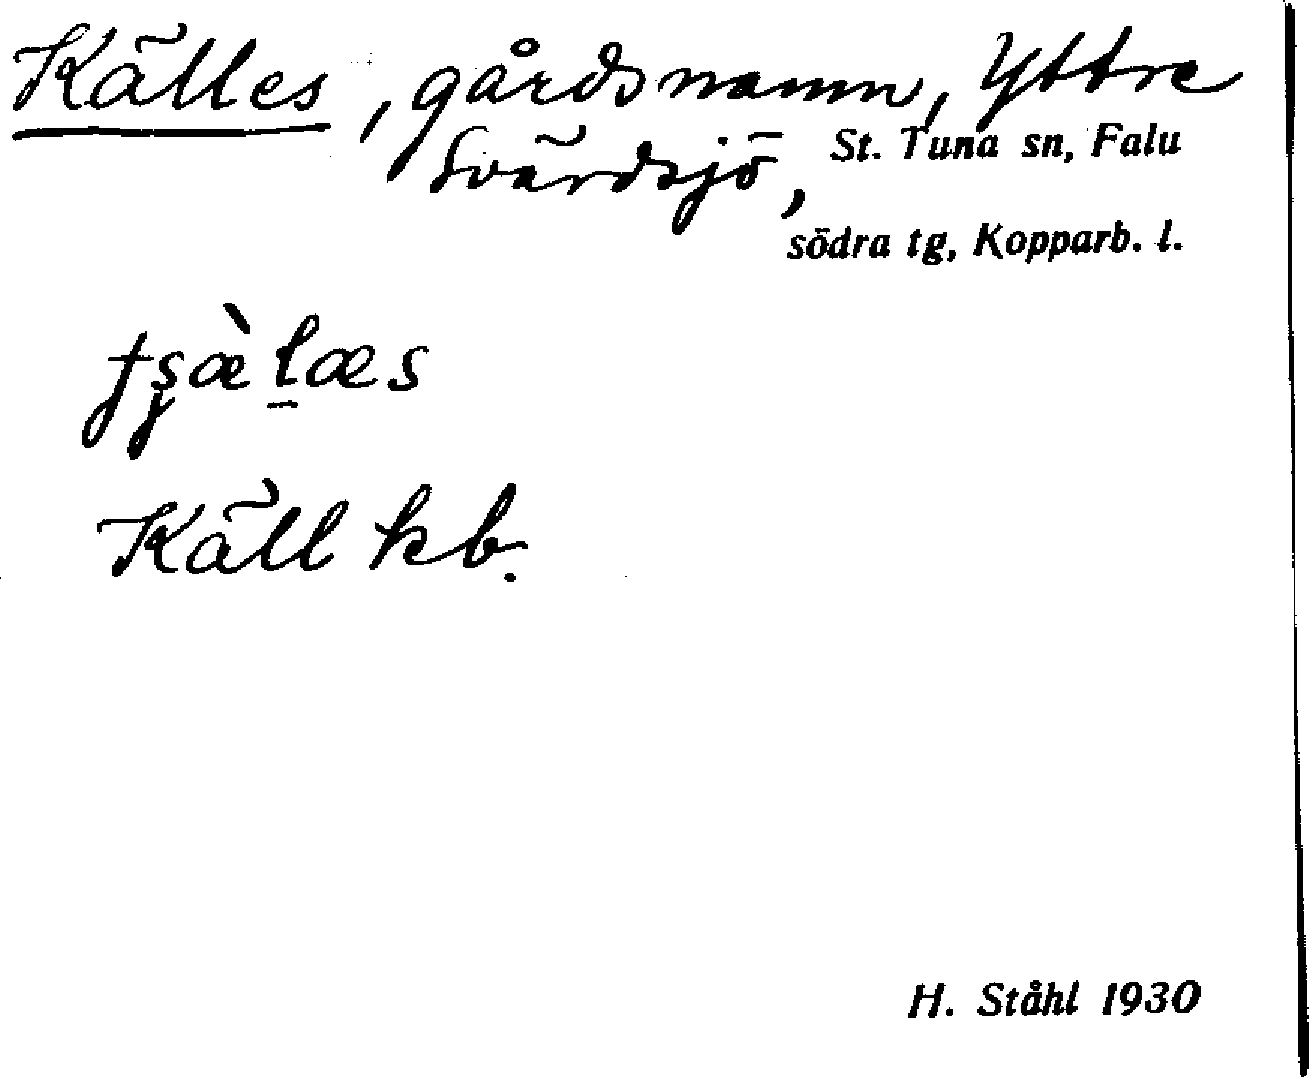 Källes, gårdsnamn, Yttre
Svärdsjö, St. Tuna sn, Falu
södra tg, Kopparb. l.
Käll kb.
H. Ståhl 1930